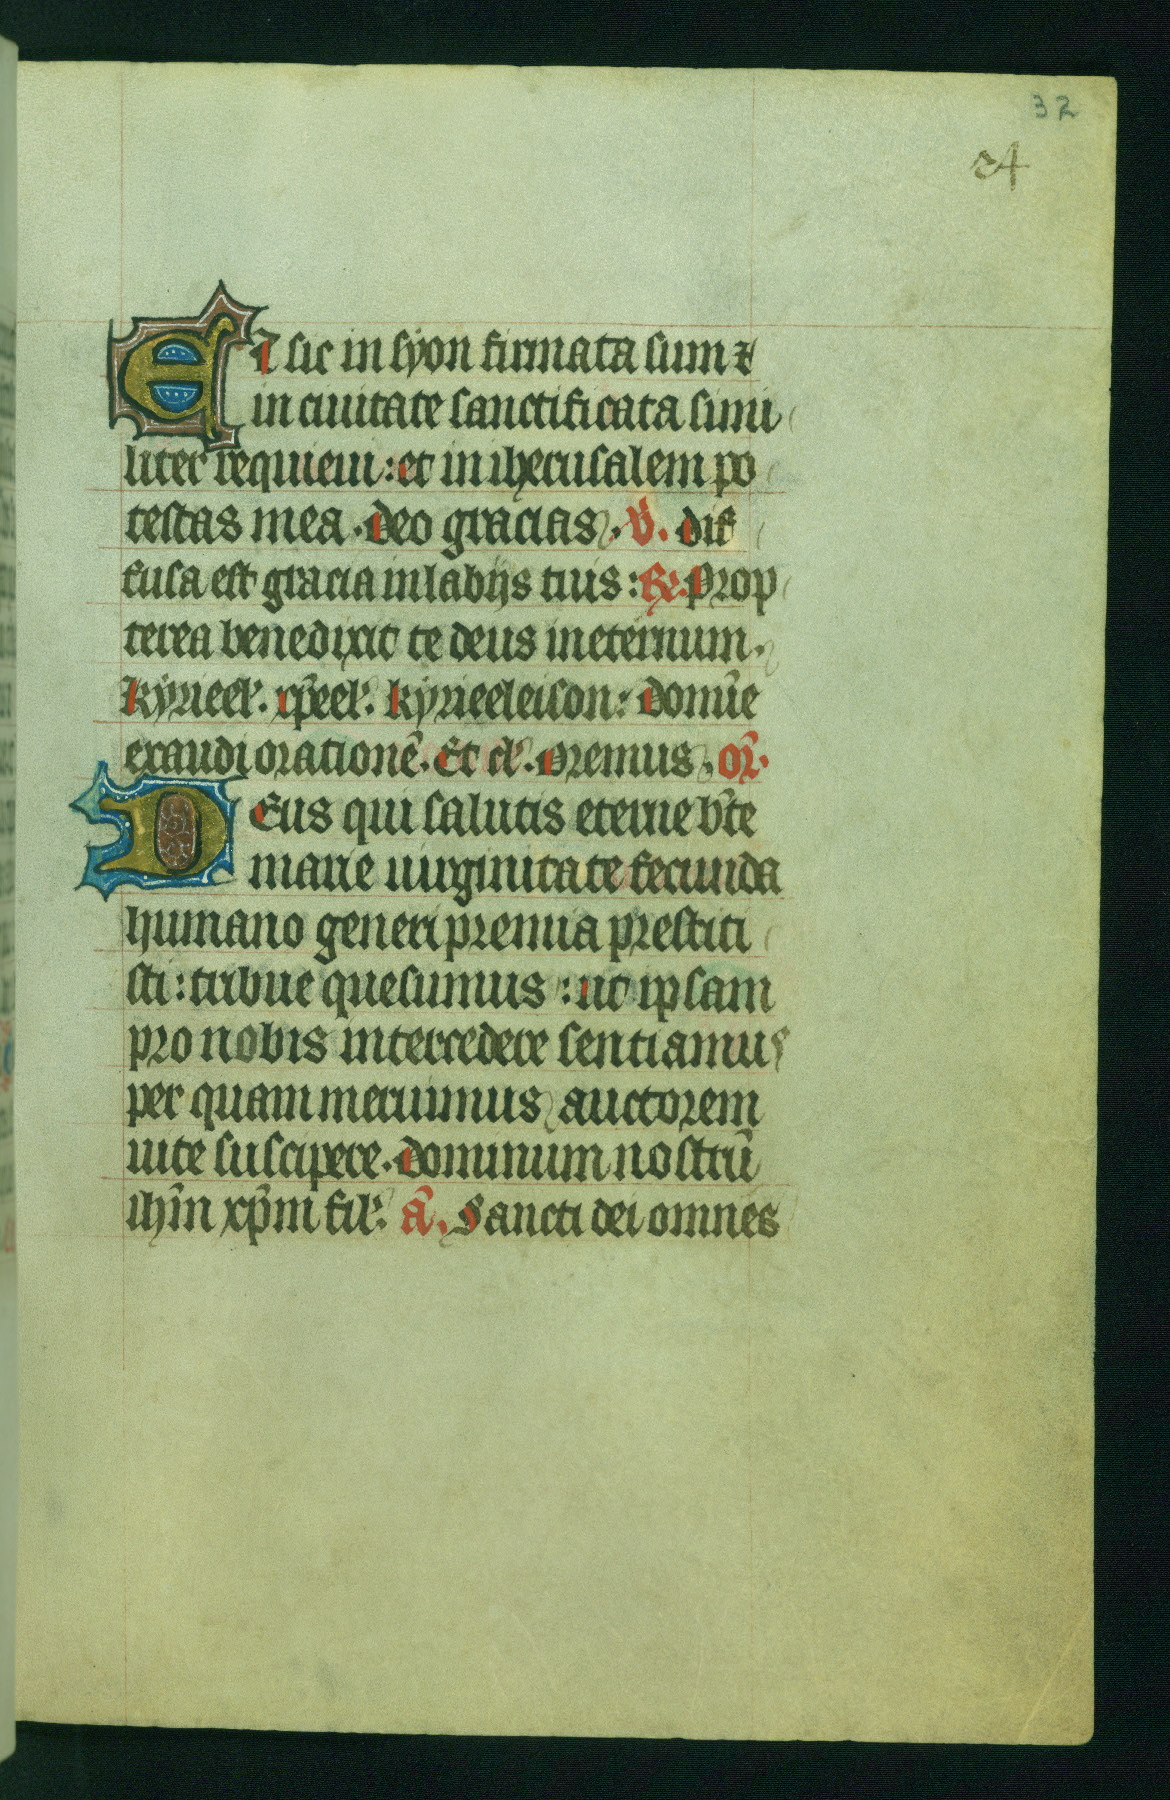 32
24
Et sic in syon firmata sum ⁊
in ciuitate sanctificata simi
liter requieui : et in iherusalem po
testas mea . Deo gracias . V̄. Dif
fusa est gracia in labijs tuis : R̄. Prop
terea benedixit te deus in eternum .
kyrieel᷒. xp̄eel᷒. kyrieeleison : Domīe
exaudi orationē. Et cl᷒. Oremus . or̄.
Deus qui salutis eterne bt̄e
marie uirginitate fecunda
humano generi premia prestiti
sti : tribue quesumus : ut ipsam
pro nobis intercedere sentiamus
per quam meruimus auctorem
uite suscipere . Dominum nostrū
ihm̄ xp̄m fil᷒. ā. Sancti dei omnes